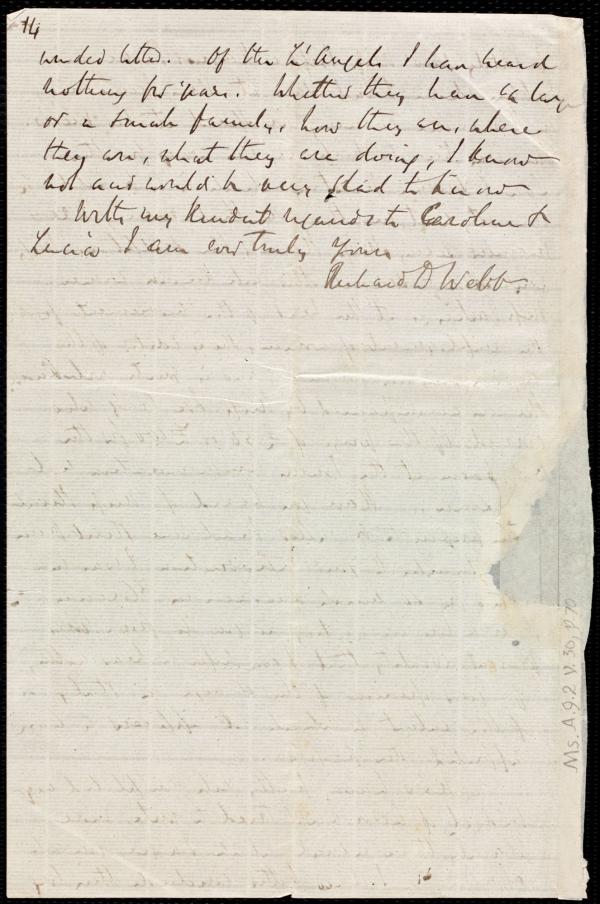 14
winded letter. Of the L'Angels I have heard
nothing for years. Whether they have a large
or a small family, how they are, where
they are, what they are doing, I know
not and would be very glad to know
With my kindest regards to Caroline &
Lucia I am ever truly Yours
Richard D Webb.
Ms. A.9.2 v.30, p.70